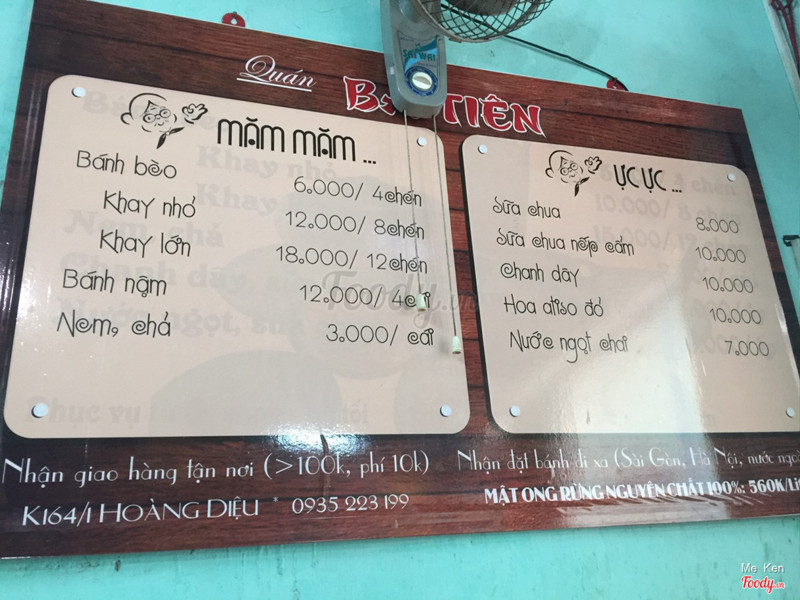 Quán
TIÊN
MĂM MĂM ...
Bánh bèo 6.000/ 4 chén
Khay nhỏ 12.000/ 8 chén
Khay lớn 18.000/ 12 chén
Bánh nạm 12.000/ 4 cái
Nem, chả 3.000/ cái
ỰC ỰC ...
Sữa chua 8.000
Sữa chua nếp cẩm 10.000
Chanh dây 10.000
Hoa atiso đỏ 10.000
Nước ngọt chai 7.000
Nhận giao hàng tận nơi (>100k, phí 10k)
K164/1 HOÀNG DIỆU * 0935 223 199
Nhận đặt bánh đi xa (Sài Gòn, Hà Nội, nước
MẬT ONG RỪNG NGUYÊN CHẤT 100%: 560K/
Foody.vn
Me Ken
Foody.vn